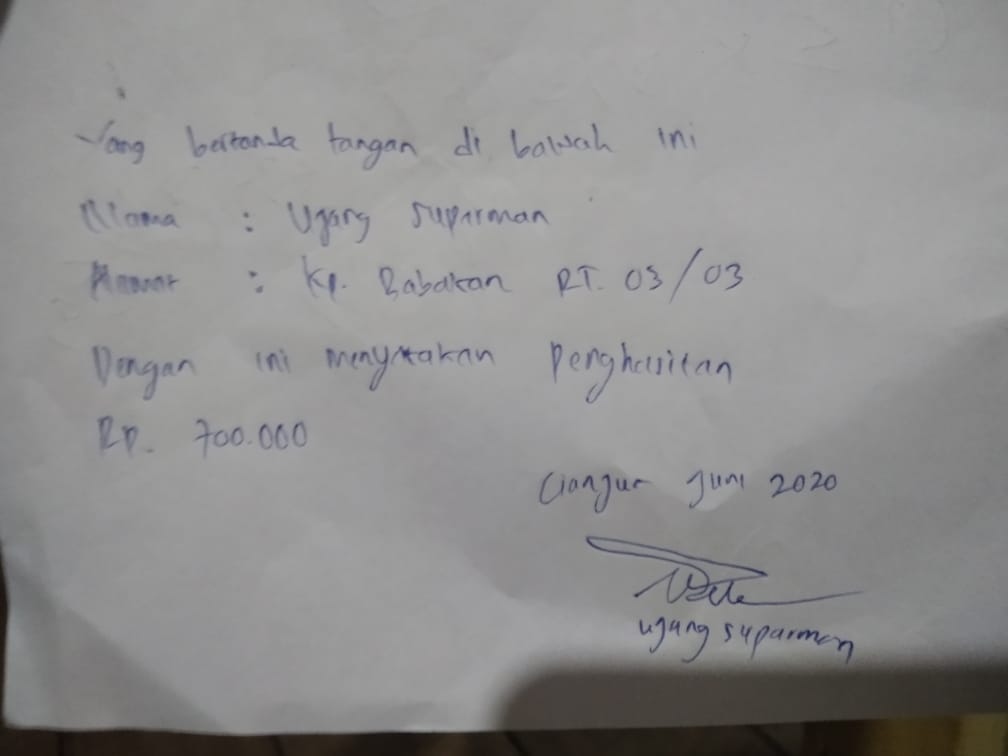 Yang bertanda tangan di bawah ini
Nama : Ujang Suparman
Alamat : Kp. Babakan RT. 03/03
Dengan ini menyatakan Penghasilan
Rp. 700.000
Cianjur Juni 2020
Ujang Suparman